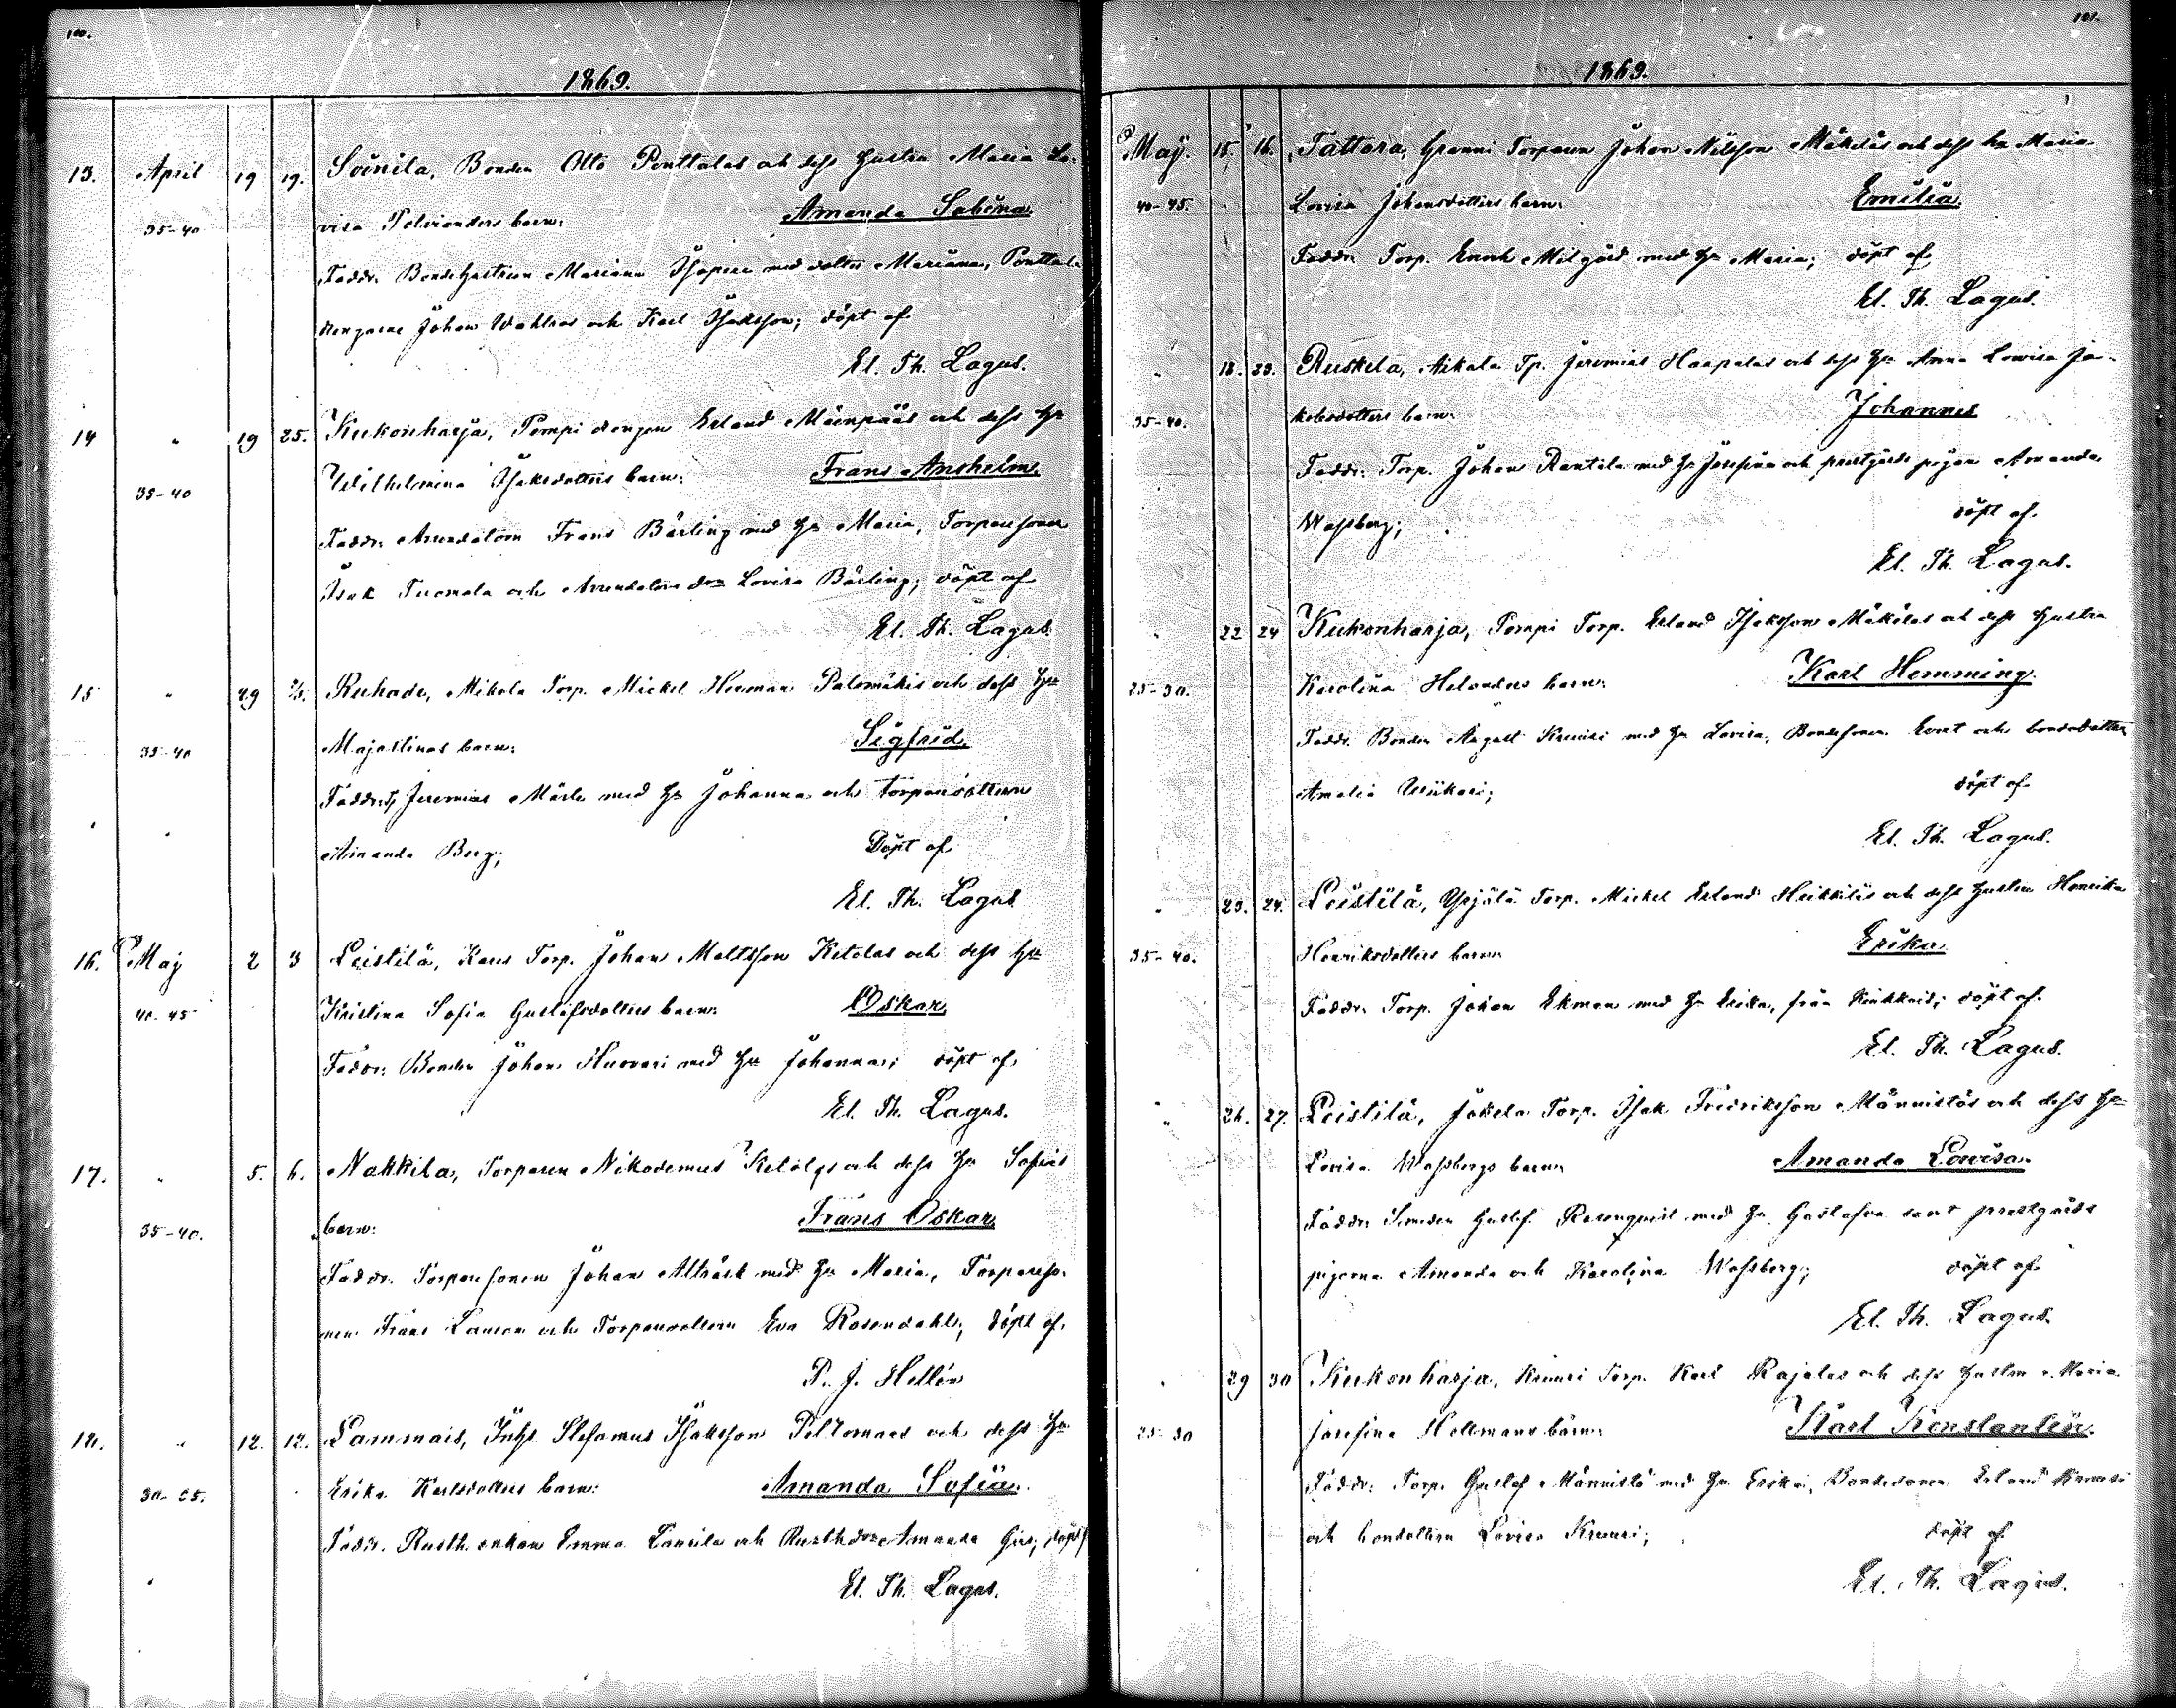 100.
1869.
13. April 19 19. Soinila, Bonden Otto Penttalas och dess hustru Maria Lo-
35-40 visa Polvianders barn: Amanda Sabina
Faddr. Bondehustrun Mariana med dotter Mariana, Penttala
drengarne Johan Wahlros och Karl Isaksson; döpt af
El. Th. Lagus.
14 " 19 25. Kukonharja, Pompi drengen Erland Mäenpääs och dess hu
35-40 Wilhelmina Isaksdotters barn: Frans Anshelm
Faddr. Arrendatorn Frans Bärling med hu Maria, Torparesonen
Isak Tuomola och Arrendators dr Lovisa Bärling; döpt af
El. Th. Lagus.
15 " 29 2/5. Ruhade, Mikola Torp. Mickel Herman Palomäkis och dess hu
35-40 Majastinas barn: Sigfrid
Faddr: Jeremias Märle med hu Johanna och torparedottern
Amanda Berg; Döpt af
El. Th. Lagus
16. Maj 2 3 Leistilä, Karus Torp. Johan Mattsson Ketolas och dess hu
40-45 Kristina Sofia Gustafsdotters barn: Oskar
Faddr: Bonden Johan Huovari med hu Johanna; döpt af
El. Th. Lagus.
17. " 5. 6. Nakkila, Torparen Nikodemus Ketolas och dess hu Sofias
35-40. barn: Frans Oskar
Faddr. Torparesonen Johan Alträsk med hu Maria, Torpareso-
nen Frans Lauren och Torparedottern Eva Rosendahl; döpt af
P. J. Hellén
18. " 12. 12. Lammais, Inhs Stefanus Isaksson Peltomaas och dess hu
30-35. Erika Karlsdotters barn: Amanda Sofia.
Faddr. Rusth. enkan Emma Lansila och Rusth dr Amanda; döpt
El. Th. Lagus.
101.
1869.
Maj. 15. 16. Tattara, Granni Torparen Johan Nilsson Mäkeläs och dess hu Maria
40-45. Lovisa Johansdotters barn: Emilia
Faddr. Torp. Enok med hu Maria; döpt af
El. Th. Lagus.
" 18. 23. Ruskila, Arkala Tp. Jeremias Haapalas och dess hu Anna Lowisa Ja-
35-40. kobsdotters barn: Johannes
Faddr: Torp. Johan Rantala med hu Josefina och prestgårds pigan Amanda
Wassberg; döpt af
El. Th. Lagus.
" 22 24 Kukonharja, Pompi Torp. Erland Isaksson Mäkeläs och dess hustru
25-30. Karolina Helanders barn: Karl Hemming.
Faddr. Bonden August Kruusi med hu Lovisa, Bondesonen Evert och bondedottern
Amalia Uusikari; döpt af
El. Th. Lagus.
" 23. 24. Leistilä, Yrjälä Torp. Mickel Erland Heikkiläs och dess hustru Henrika
35-40. Henriksdotters barn: Erika
Faddr. Torp. Johan Ekman med hu Erika, från; döpt af
El. Th. Lagus.
" 26. 27. Leistilä, Jokela Torp. Isak Fredriksson Männistös och dess hu
" Lovisa Wassbergs barn: Amanda Lowisa
Faddr: Smeden Gustaf Rosenqvist med hu Gustafva samt prestgårds
pigorna Amanda och Karolina Wassberg; döpt af
El. Th. Lagus.
" 29 30 Kukonharja, Kruusi Torp. Karl Rajalas och dess hustru Maria
25-30 Josefina Hellmans barn: Karl Konstantin.
Faddr: Torp. Gustaf Männistö med hu Erika, Bondesonen Erland Kruusi
och bondottern Lovisa Kruusi; döpt af
El. Th. Lagus.